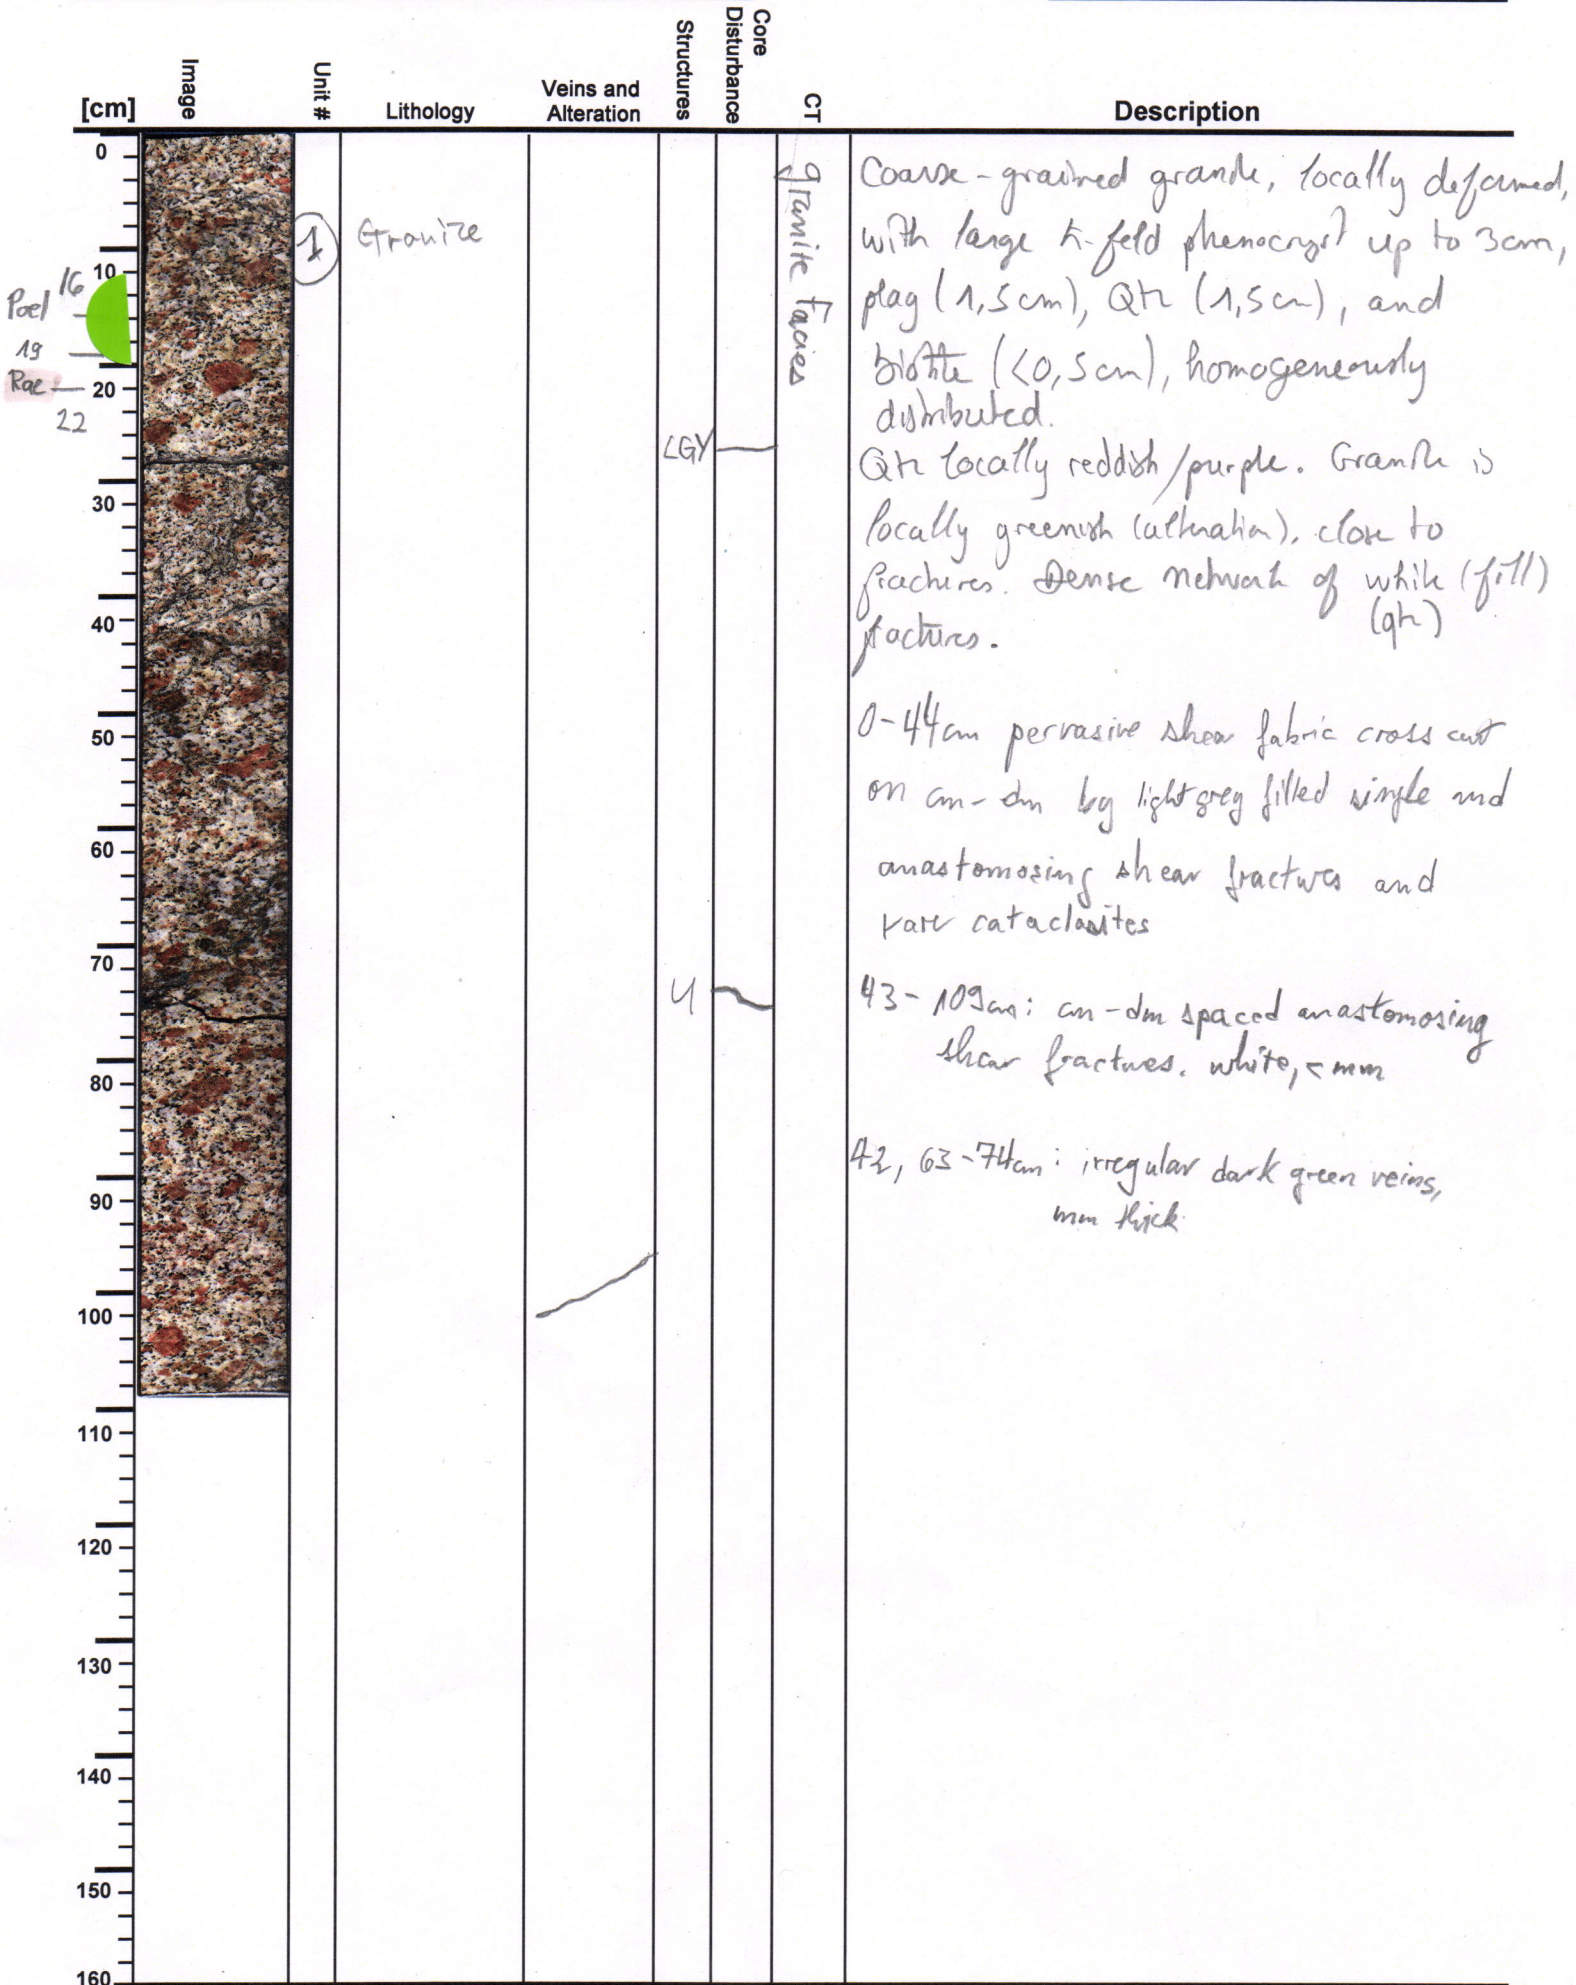 [cm]
Image
Unit #
Lithology
Veins and
Alteration
Structures
Core
Disturbance
CT
Description
0
10
20
30
40
50
60
70
80
90
100
110
120
130
140
150
160
16
Poel
19
Rae
22
1
Granite
LGY
granite facies
Coarse-grained granite, locally deformed,
with large K-feld phenocryst up to 3cm,
plag (1,5cm), Qtz (1,5cm), and
biotite (<0,5cm), homogeneously
distributed.
Qtz locally reddish/purple. Granite is
locally greenish (alteration), close to
fractures. Dense network of white (fill)
(qtz)
fractures.
0-44cm pervasive shear fabric cross cut
on cm-dm by lightgrey filled single and
anastomosing shear fractures and
rare cataclasites
43-109cm: cm-dm spaced anastomosing
shear fractures. white, <mm
42, 63-74cm: irregular dark green veins,
mm thick